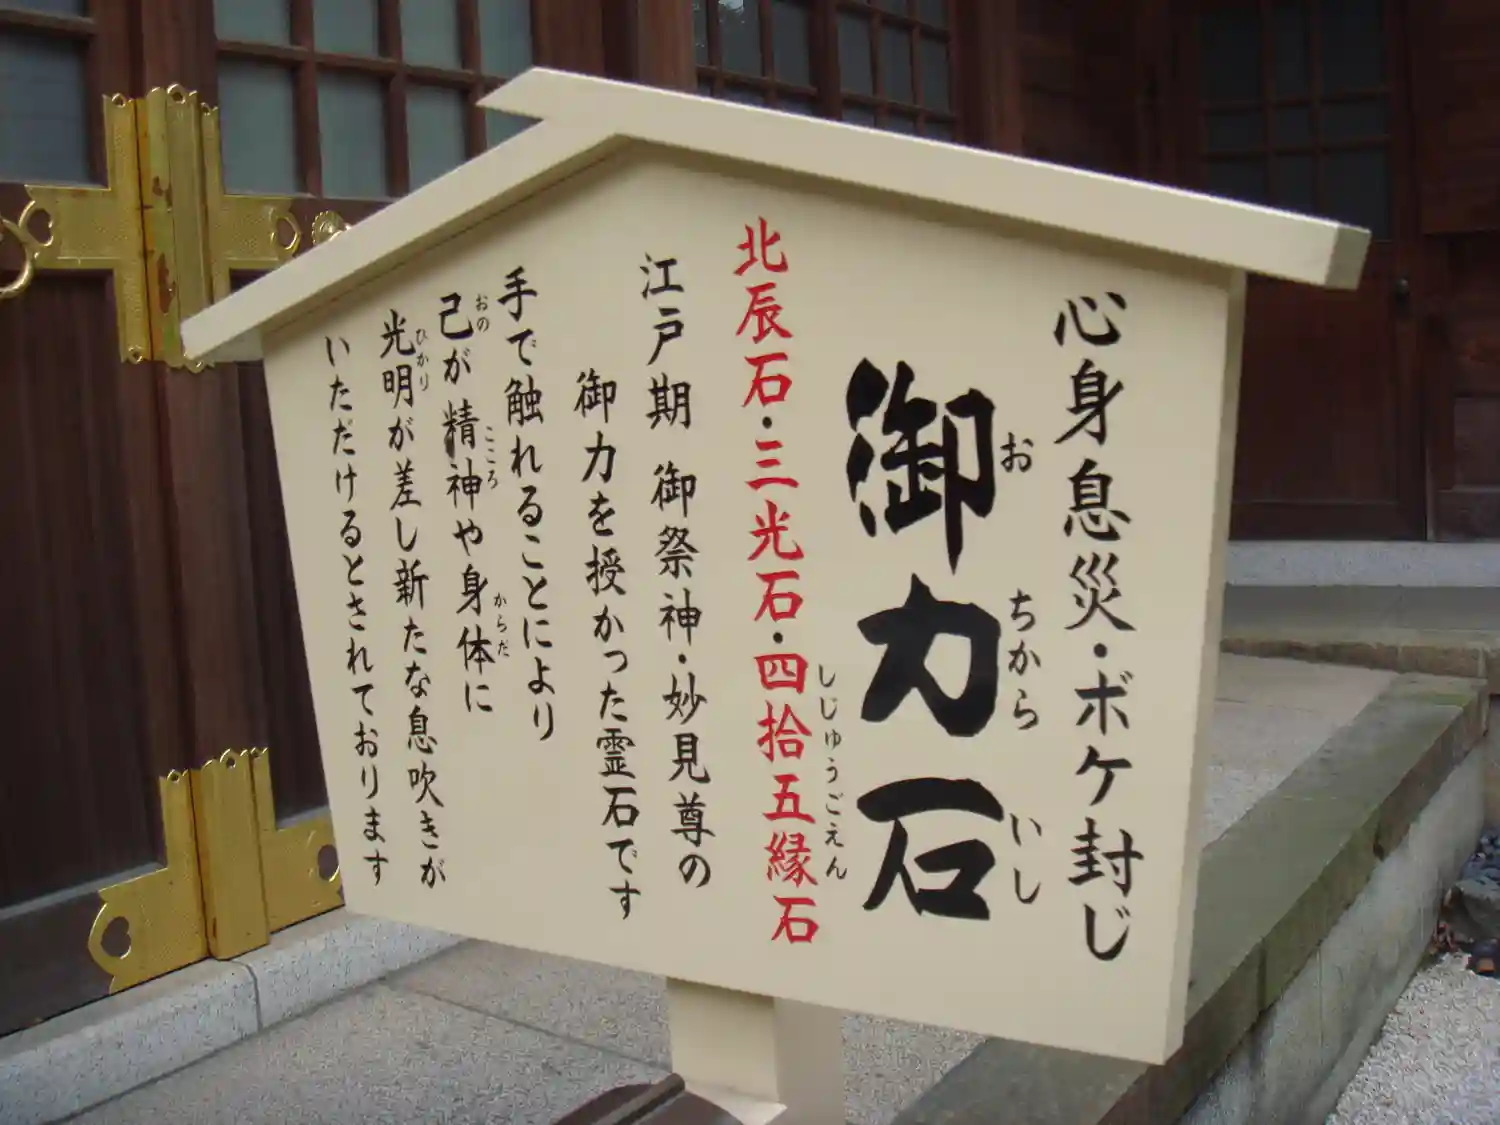 心身息災・ボケ封じ
御力石
おちからいし
北辰石・三光石・四拾五縁石
しじゅうごえん
江戸期 御祭神・妙見尊の
御力を授かった霊石です
手で触れることにより
己が精神や身体に
おの こころ からだ
光明が差し新たな息吹きが
ひかり
いただけるとされております